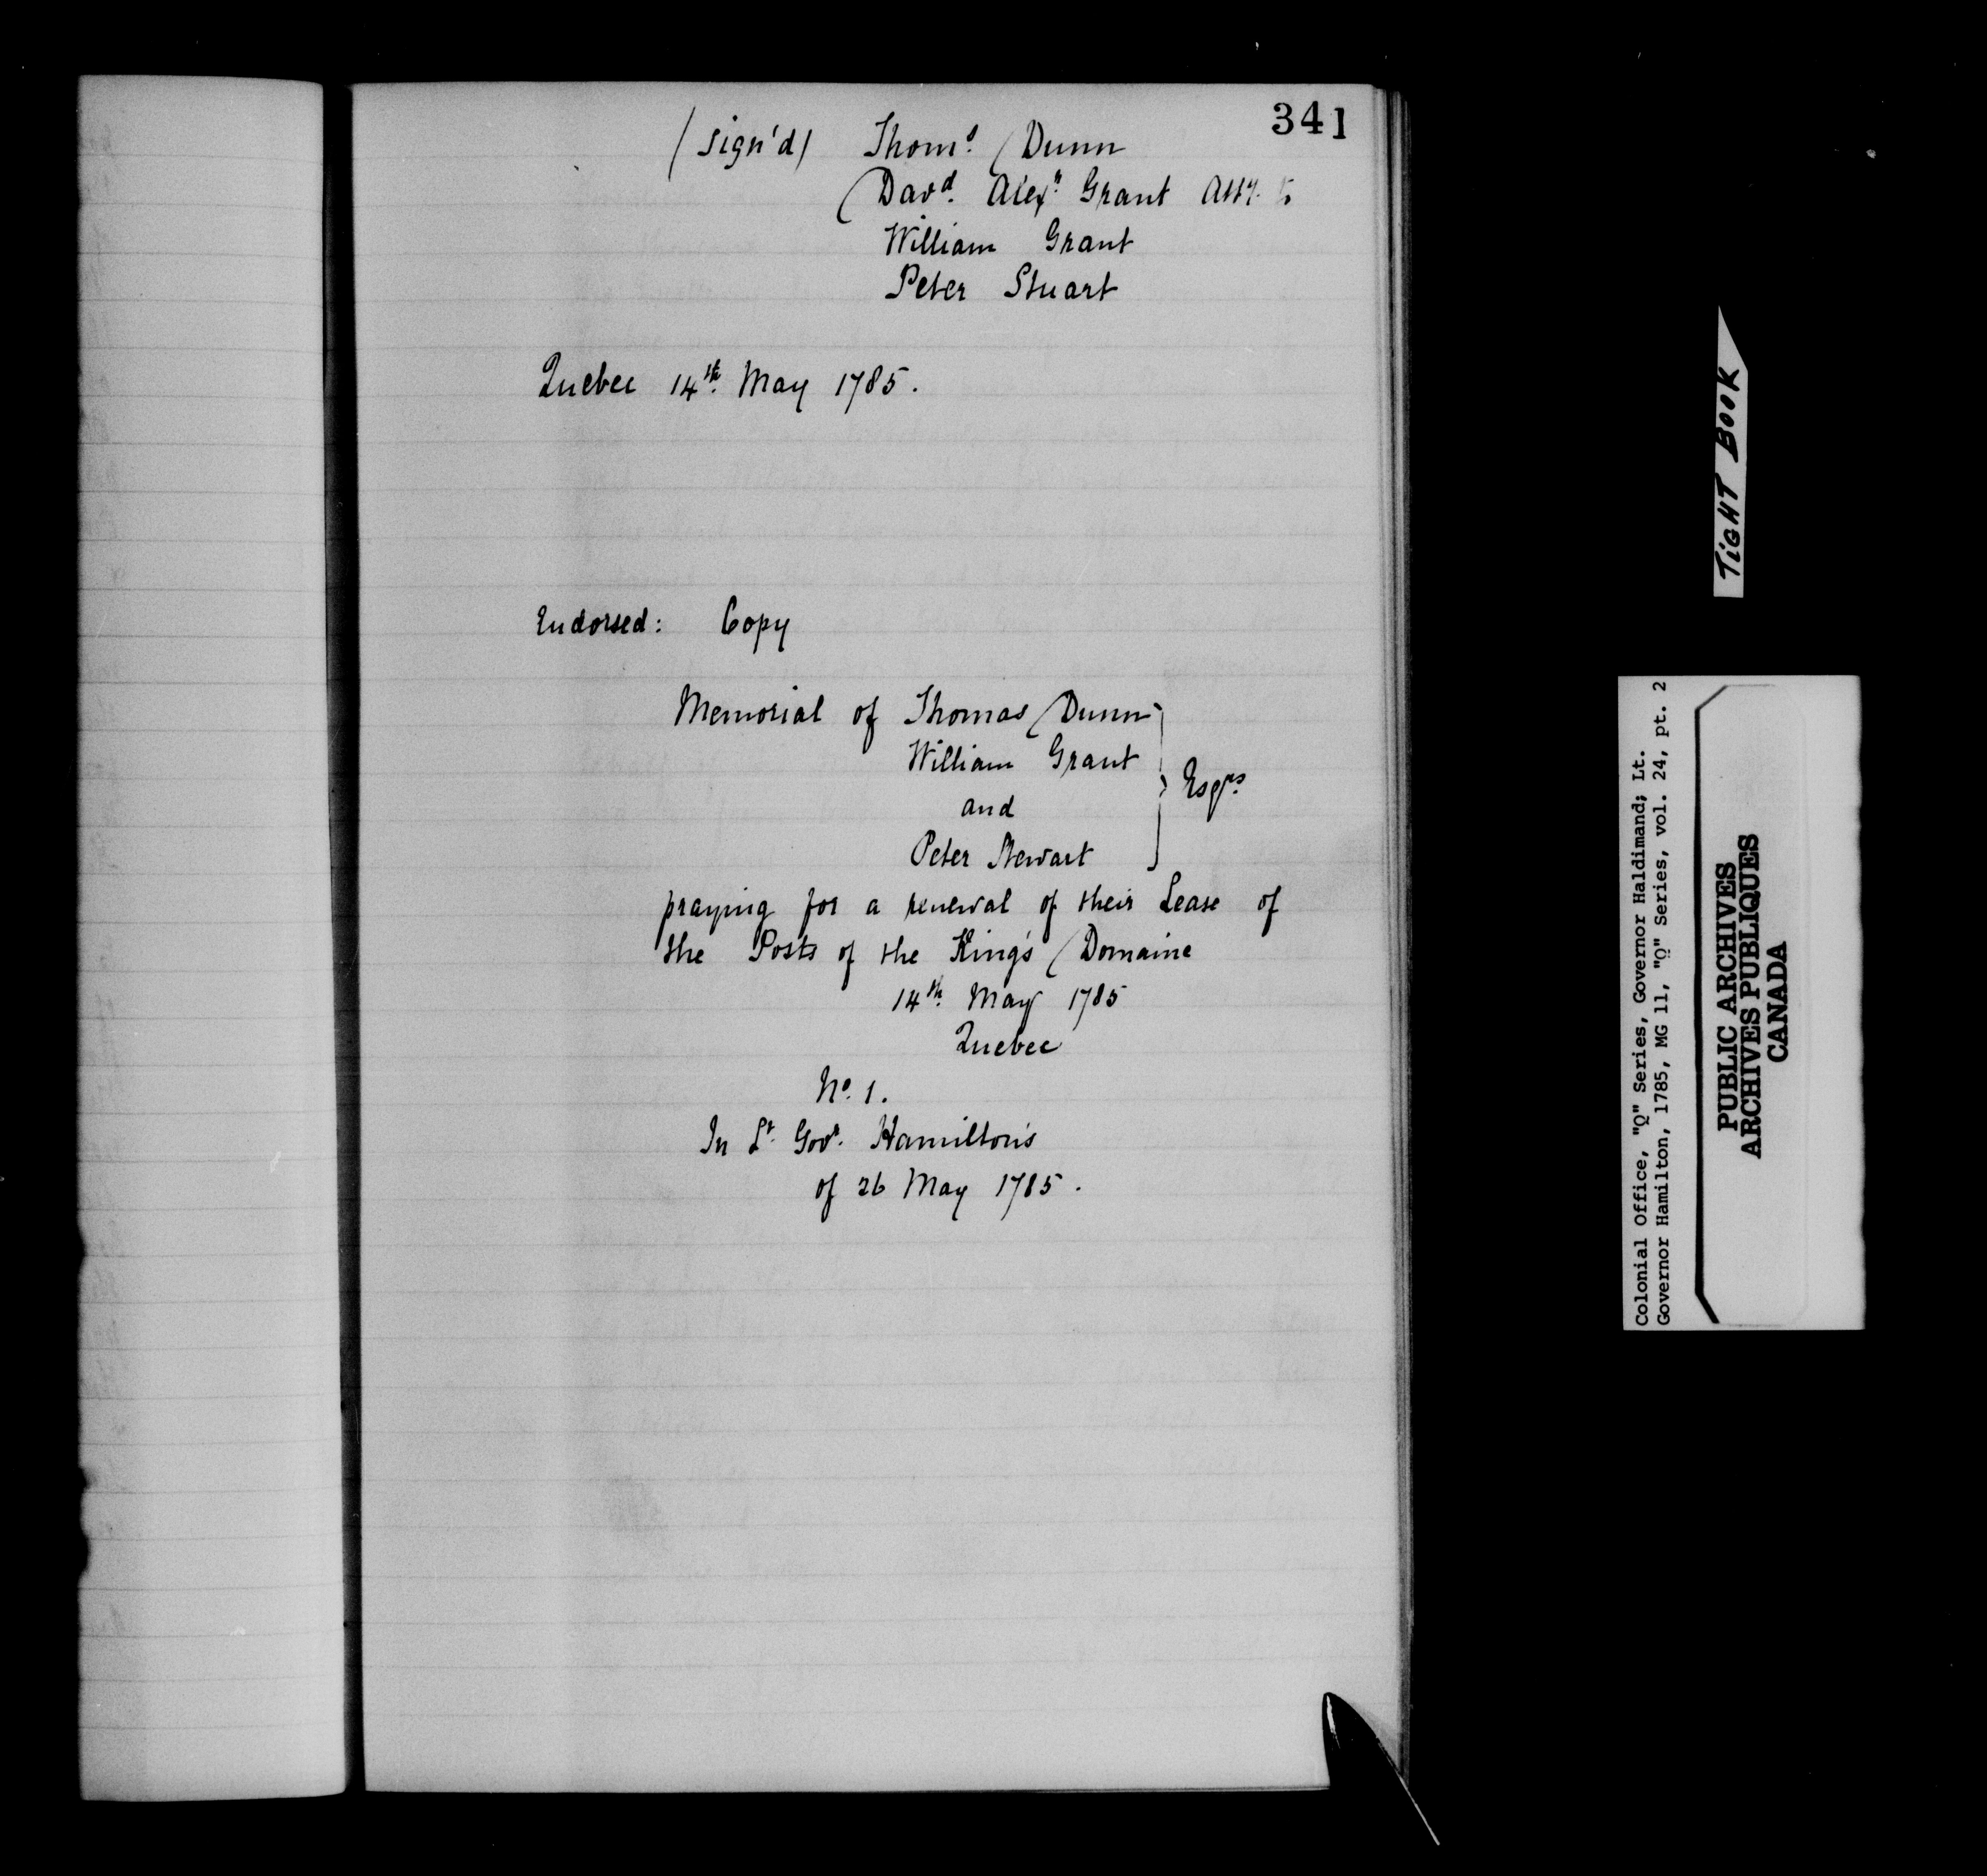 341
(sign'd) Thom.s Dunn
Dav.d Alex.r Grant Att.y to
William Grant
Peter Stuart
Quebec 14.th May 1785.
Endorsed: Copy
Memorial of Thomas Dunn
William Grant
and
Peter Stewart
Esq.rs
praying for a renewal of their Lease of
the Posts of the King's Domaine
14.th May 1785
Quebec
N.o 1.
In L.t Gov.r Hamilton's
of 26 May 1785.
TIGHT BOOK
Colonial Office, "Q" Series, Governor Haldimand; Lt.
Governor Hamilton, 1785, MG 11, "Q" Series, vol. 24, pt. 2
PUBLIC ARCHIVES
ARCHIVES PUBLIQUES
CANADA